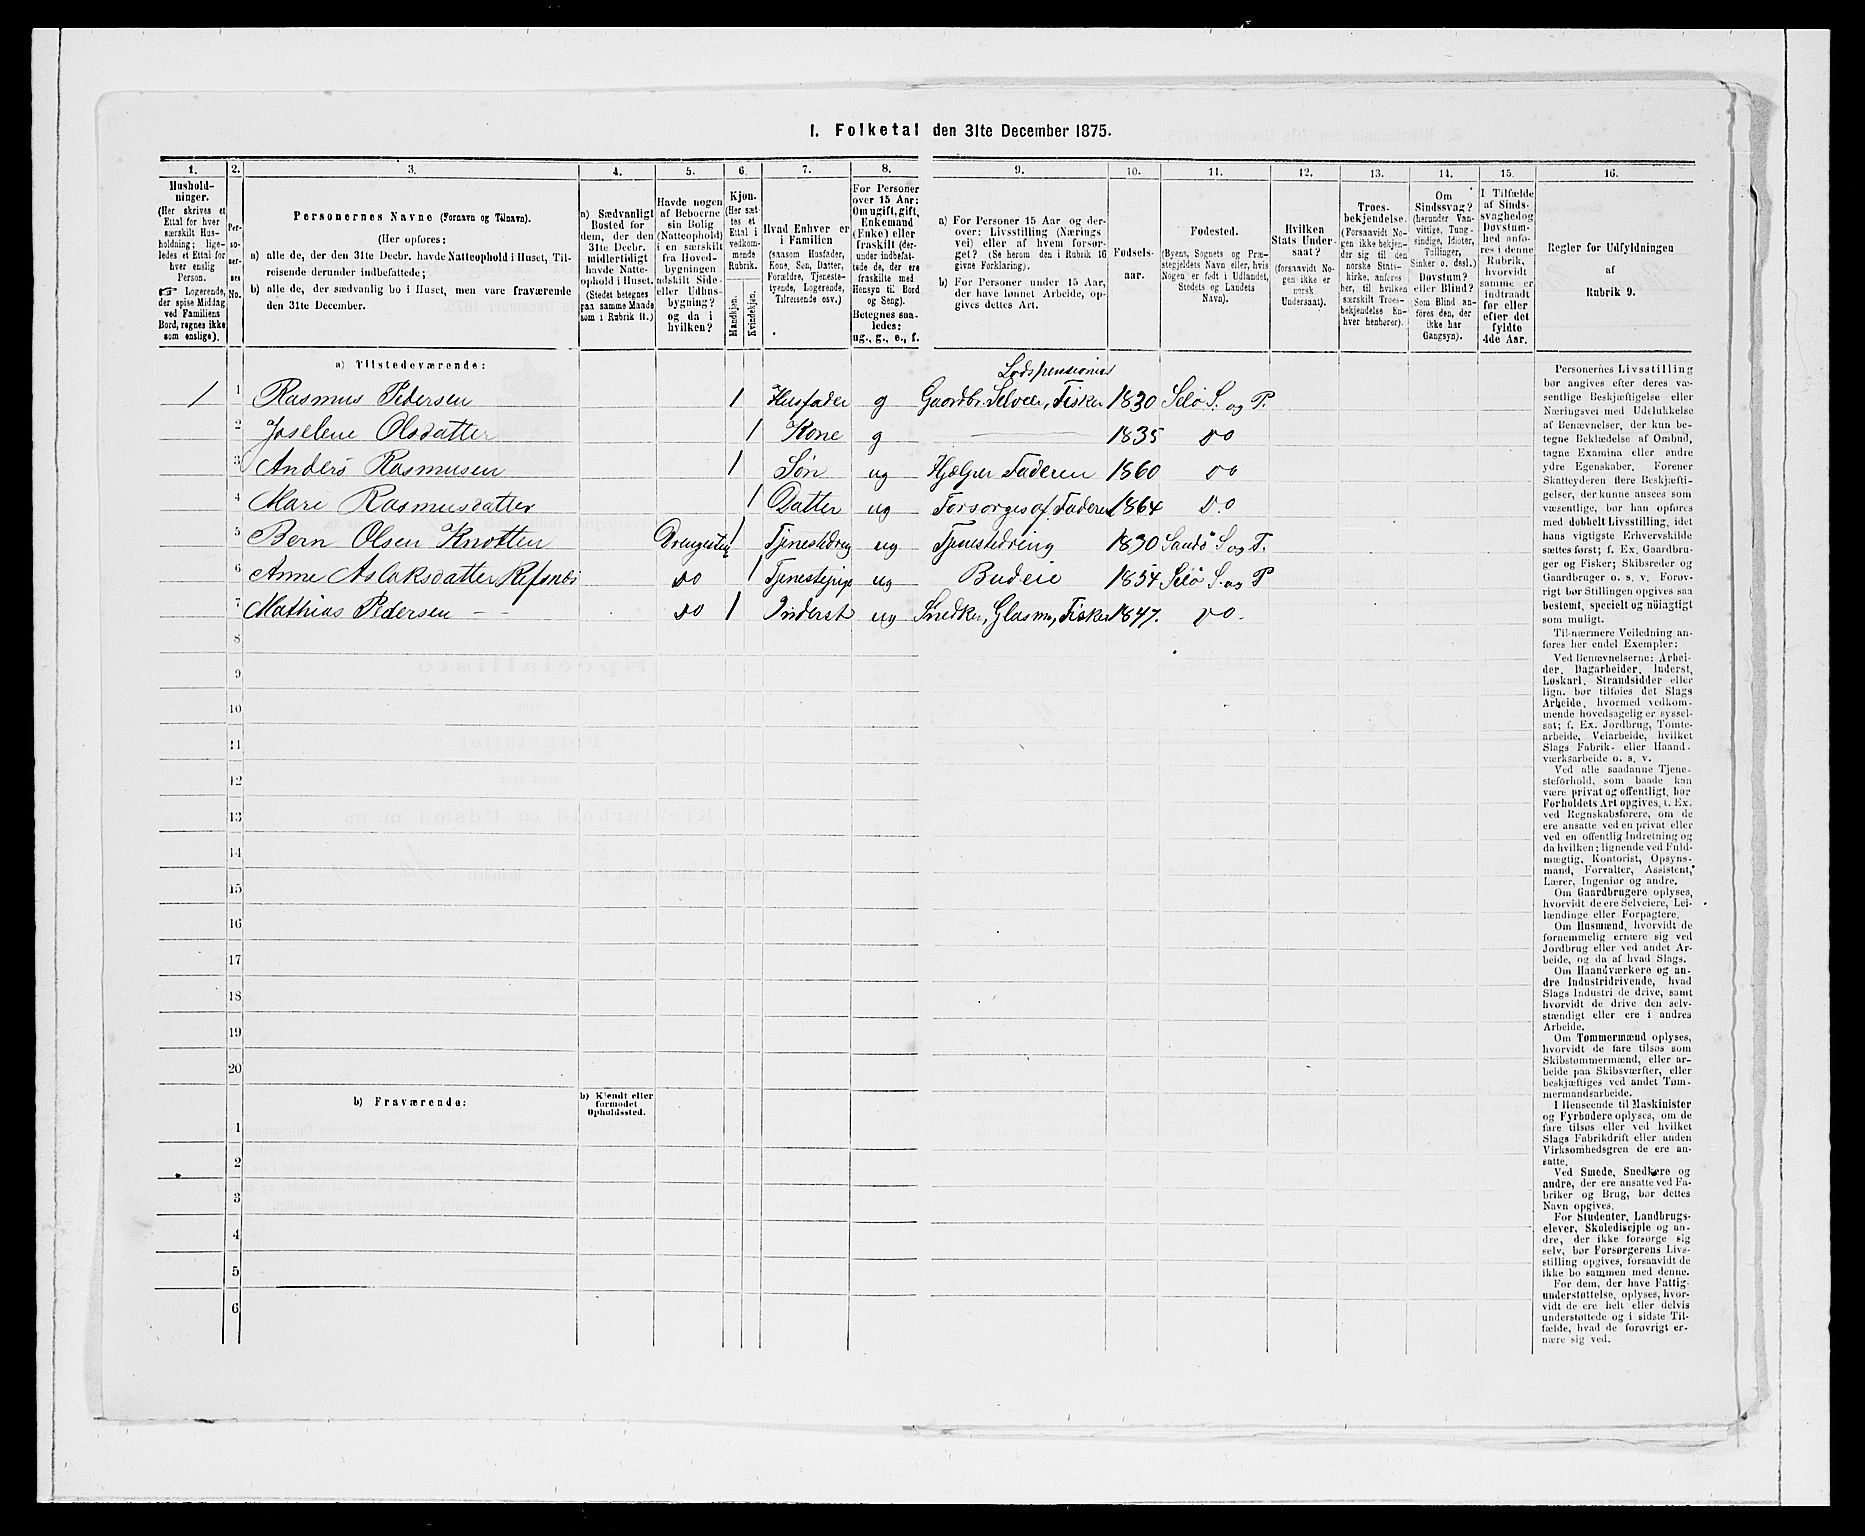 1. Folketal den 31te December 1875.
1. 2. 3. 4. 5. 6. 7. 8. 9. 10. 11. 12. 13. 14. 15. 16.
Hushold-
ninger.
(Her skrives et
Ettal for hver
særskilt Hus-
holdning; lige-
ledes et Ettal for
hver enslig
Person.
☞ Logerende,
der spise Middag
ved Familiens
Bord, regnes ikke
som enslige).
Per-
so-
ner-
nes
No.
Personernes Navne (Fornavn og Tilnavn).
(Her opføres:
a) alle de, der den 31te Decbr. havde Natteophold i Huset, Til-
reisende derunder indbefattede;
b) alle de, der sædvanlig bo i Huset, men vare fraværende
den 31te December.
a) Sædvanligt
Bosted for
dem, der den
31te Decbr.
midlertidigt
havde Natte-
ophold i Huset.
(Stedet betegnes
paa samme Maade
som i Rubrik 11.)
Havde nogen
af Beboerne
sin Bolig
(Natteophold)
i en særskilt
fra Hoved-
bygningen
adskilt Side-
eller Udhus-
bygning?
og da i
hvilken?
Kjøn.
(Her sæt-
tes et
Ettal i
vedkom-
mende
Rubrik.
Mandkjøn.
Kvindekjøn.
Hvad Enhver er
i Familien
(saasom Husfader,
Kone, Søn, Datter,
Forældre, Tjeneste-
tyende, Logerende,
Tilreisende osv.)
For Personer
over 15 Aar:
Om ugift, gift,
Enkemand
(Enke) eller
fraskilt (der-
under indbefat-
tede de, der ere
fraskilte med
Hensyn til Bord
og Seng).
Betegnes saa-
ledes:
ug., g., e., f.
a) For Personer 15 Aar og der-
over: Livsstilling (Nærings
vei) eller af hvem forsør-
get? (Se herom den i Rubrik 16
givne Forklaring).
b) For Personer under 15 Aar,
der have lønnet Arbeide, op-
gives dettes Art.
Fødsels-
aar.
Fødested.
(Byens, Sognets og Præ-
stegjeldets Navn eller, hvis
Nogen er født i Udlandet,
Stedets og Landets
Navn).
Hvilken
Stats Under-
saat?
(forsaavidt No-
gen ikke er
norsk
Undersaat).
Troes-
bekjendelse.
(Forsaavidt No-
gen ikke bekjen-
der sig til den
norske Stats-
kirke, anføres
her, til hvilken
særskilt Troes-
bekjendelse En-
hver henhører).
Om
Sindssvag?
(herunder Van-
vittige, Tung-
sindige, Idioter,
Tullinger,
Sinker o. desl.)
Døvstum?
eller Blind?
(Som Blind an-
føres den, der
ikke har
Gangsyn).
I Tilfælde
af Sinds-
svaghed og
Døvstum-
hed anfø-
res i denne
Rubrik,
hvorvidt
samme er
indtraadt
før eller
efter det
fyldte
4de Aar.
Regler for Udfyldningen
af
Rubrik 9.
a) Tilstedeværende:
Lodspensionist
1 1 Rasmus Pedersen 1 Husfader g Gaardbr. Selveier, Fisker 1830 Selø S. og P.
2 Joselene Olsdatter 1 Kone g 1835 do
3 Anders Rasmusen 1 Søn ug Hjælper Faderen 1860 do
4 Mari Rasmusdatter 1 Datter ug Forsørges af Faderen 1864 do
5 Bern Olsen Knotten Drengestue 1 Tjenestedreng ug Tjenestedreng 1830 Sandø S. og P.
6 Anne Aslaksdatter Refsnes do 1 Tjenestepige ug Budeie 1854 Selø S. og P
7 Mathias Pedersen - - do 1 Inderst ug Snedker, Glasm., Fisker 1847. do.
8
9
10
11
12
13
14
15
16
17
18
19
20
b) Fraværende:
b) Kjendt eller
formodet
Opholdssted.
1
2
3
4
5
6
Personernes Livsstilling
bør angives efter deres væ-
sentlige Beskjæftigelse eller
Næringsvei med Udelukkelse
af Benævnelser, der kun be-
tegne Beklædelse af Ombud,
tagne Examina eller andre
ydre Egenskaber. Forener
Skatteyderen flere Beskjæfti-
gelser, der kunne ansees som
væsentlige, bør han opføres
med dobbelt Livsstilling, idet
hans vigtigste Erhvervskilde
sættes først; f. Ex. Gaardbru-
ger og Fisker; Skibsreder og
Gaardbruger o. s. v. Forøv-
rigt bør Stillingen opgives saa
bestemt, specielt og nøiagtigt
som muligt.
Til nærmere Veiledning an-
føres her endel Exempler:
Ved Benævnelserne: Arbei-
der, Dagarbeider, Inderst,
Løskarl, Strandsidder eller
lign. bør tilføies det Slags
Arbeide, hvormed vedkom-
mende hovedsagelig er syssel-
sat; f. Ex. Jordbrug, Tomte-
arbeide, Veiarbeide, hvilket
Slags Fabrik- eller Haand-
værksarbeide o. s. v.
Ved alle saadanne Tjene-
steforhold, som baade kan
være privat og offentligt, bør
Forholdets Art opgives, t. Ex.
ved Regnskabsførere, om de
ere ansatte ved en privat eller
ved en offentlig Indretning og
da hvilken; lignende ved Fuld-
mægtig, Kontorist, Opsyns-
mand, Forvalter, Assistent,
Lærer, Ingeniør og andre.
Om Gaardbrugere oplyses,
hvorvidt de ere Selveiere, Lei-
lændinge eller Forpagtere.
Om Husmænd, hvorvidt de
fornemmelig ernære sig ved
Jordbrug eller ved andet Ar-
beide, og da af hvad Slags.
Om Haandværkere og an-
dre Industridrivende, hvad
Slags Industri de drive, samt
hvorvidt de drive den selv-
stændigt eller ere i andres
Arbeide.
Om Tømmermænd oplyses,
hvorvidt de fare tilsøs som
Skibstømmermænd, eller ar-
beide paa Skibsværfter, eller
beskjæftiges ved andet Tøm-
mermandsarbeide.
I Henseende til Maskinister
og Fyrbødere oplyses, om de
fare tilsøs eller ved hvilket
Slags Fabrikdrift eller anden
Virksomhedsgren de ere an-
satte.
Ved Smede, Snedkere og
andre, der ere ansatte ved Fa-
briker og Brug, bør dettes
Navn opgives.
For Studenter, Landbrugs-
elever, Skoledisciple og an-
dre, der ikke forsørge sig
selv, bør Forsørgerens Livs-
stilling opgives, forsaavidt de
ikke bo sammen med denne.
For dem, der have Fattig-
understøttelse, oplyses, hvor-
vidt de ere helt eller delvis
understøttede og i sidste Til-
fælde, hvad de forøvrigt er-
nære sig ved.